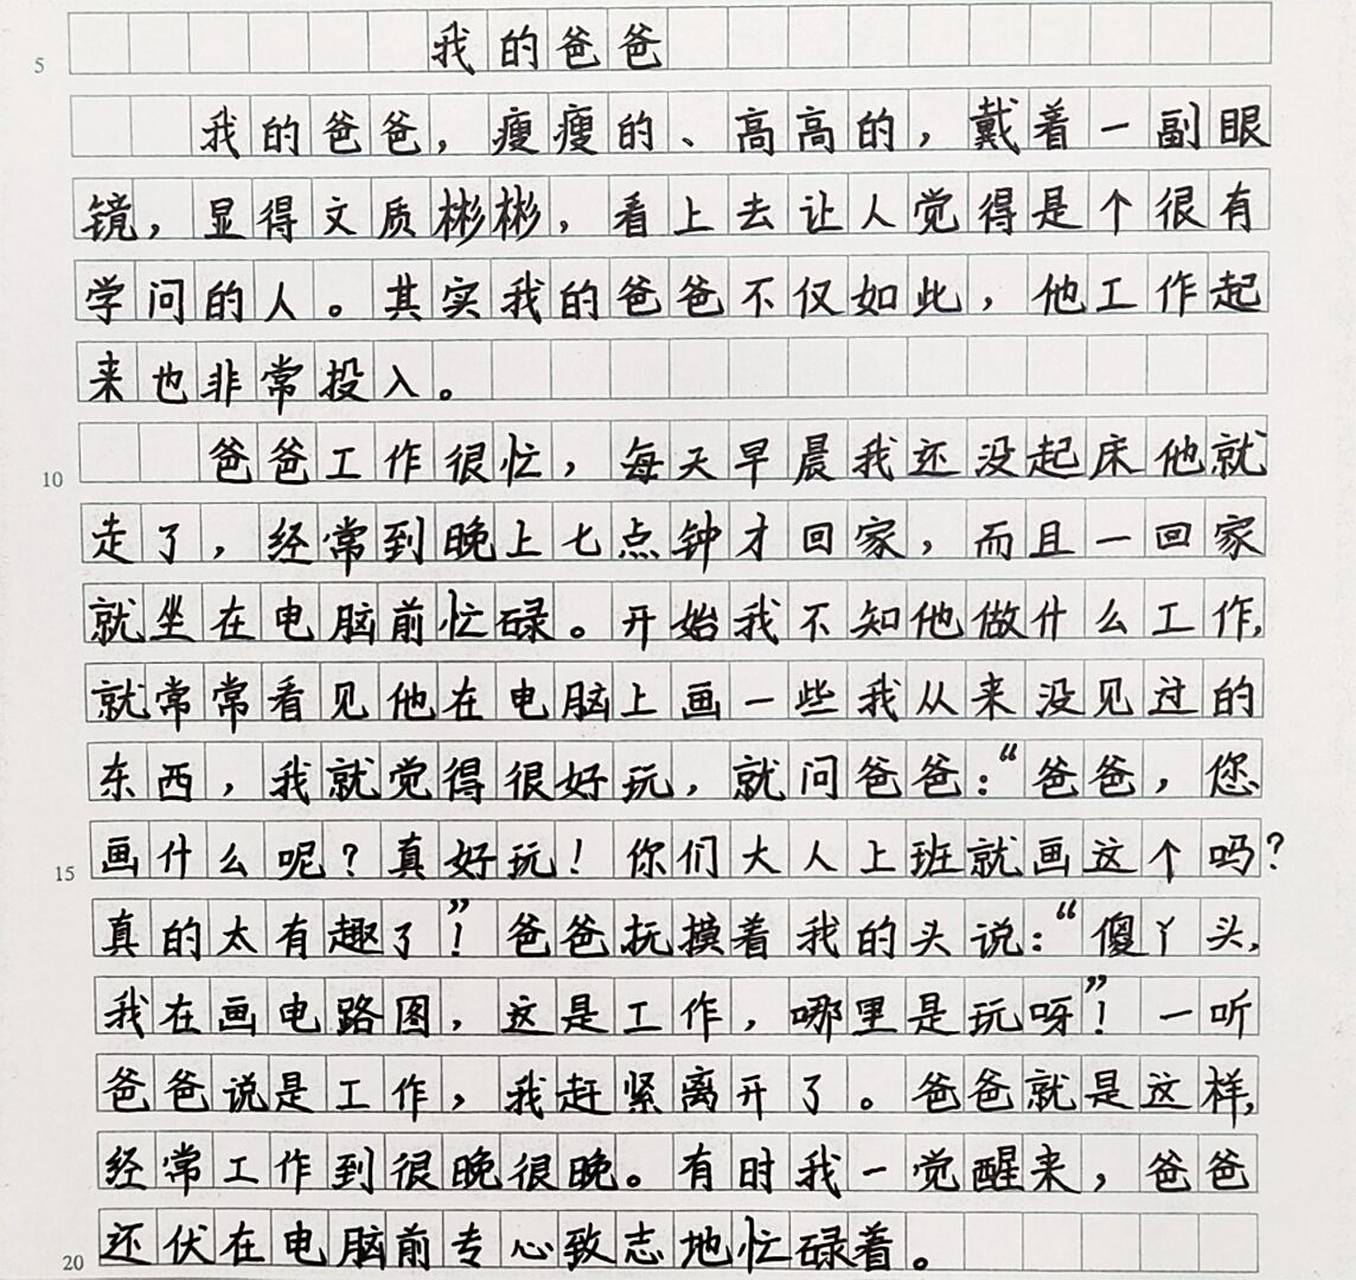 我的爸爸
5
我的爸爸，瘦瘦的、高高的，戴着一副眼
镜，显得文质彬彬，看上去让人觉得是个很有
学问的人。其实我的爸爸不仅如此，他工作起
来也非常投入。
爸爸工作很忙，每天早晨我还没起床他就
10
走了，经常到晚上七点钟才回家，而且一回家
就坐在电脑前忙碌。开始我不知他做什么工作，
就常常看见他在电脑上画一些我从来没见过的
东西，我就觉得很好玩，就问爸爸：“爸爸，您
画什么呢？真好玩！你们大人上班就画这个吗？
15
真的太有趣了！”爸爸抚摸着我的头说：“傻丫头，
我在画电路图，这是工作，哪里是玩呀！”一听
爸爸说是工作，我赶紧离开了。爸爸就是这样，
经常工作到很晚很晚。有时我一觉醒来，爸爸
还伏在电脑前专心致志地忙碌着。
20